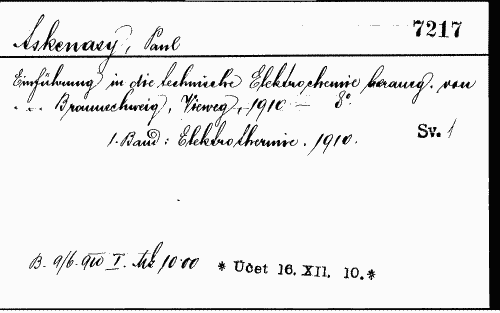 7217
Askenasy, Paul
Einführung in die technische Elektrochemie herausg. von
... Braunschweig, Vieweg, 1910 — 8°.
1. Band: Elektrothermie. 1910.
Sv. 1
B. 9/6. 910 I. Mk 10.00 * Účet 16. XII. 10. *